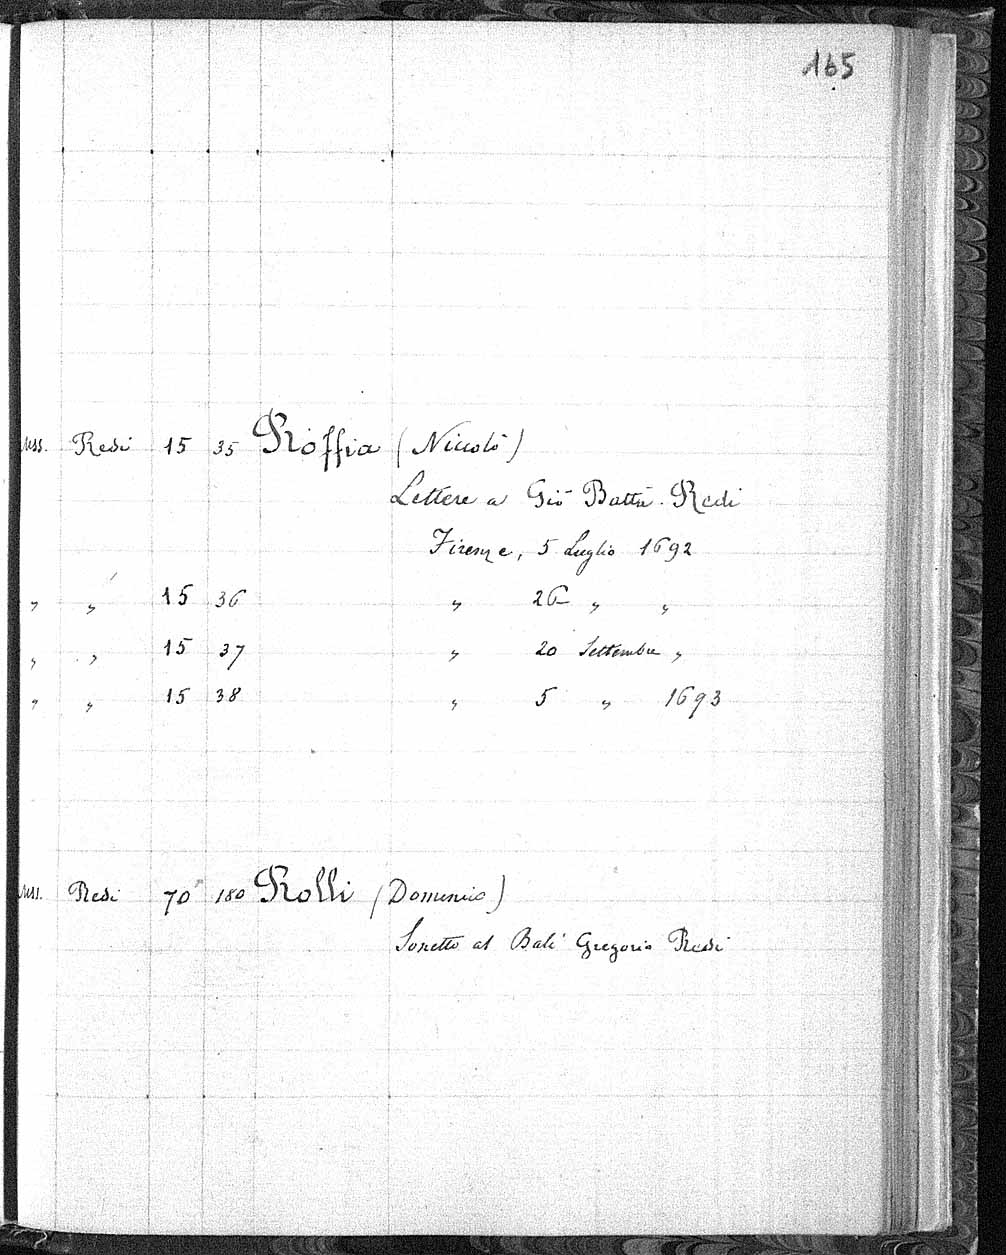 165
Mss. Redi 15 35 Roffia (Niccolò)
Lettere a Gio Batta Redi
Firenze, 5 Luglio 1692
" " 15 36 " 26 " "
" " 15 37 " 20 Settembre "
" " 15 38 " 5 " 1693
Mss. Redi 70 180 Rolli (Domenico)
Sonetto al Balì Gregorio Redi